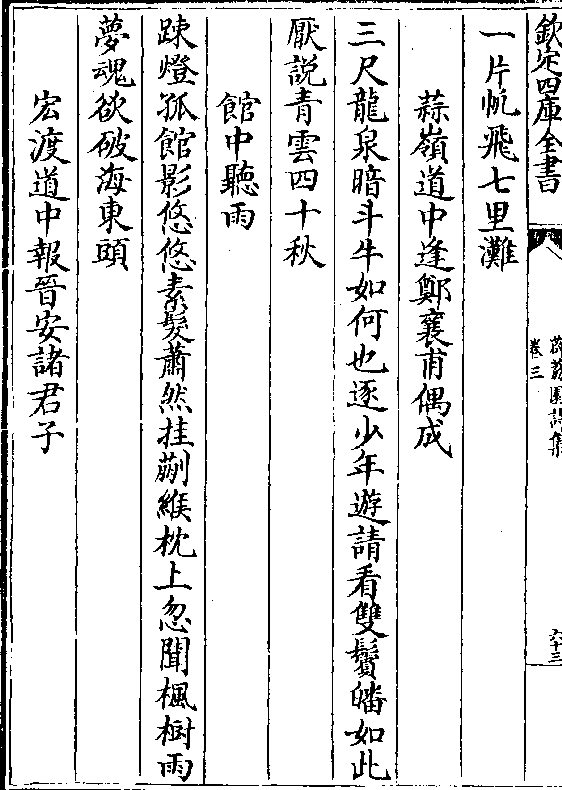 欽定四庫全書
薜荔園詩集
卷三
六十三
一片帆飛七里灘
蒜嶺道中逢鄭襄甫偶成
三尺龍泉暗斗牛如何也逐少年遊請看雙鬢皤如此
厭説青雲四十秋
館中聽雨
踈燈孤館影悠悠素髮蕭然挂蒯緱枕上忽聞楓樹雨
夢魂欲破海東頭
宏渡道中報晉安諸君子